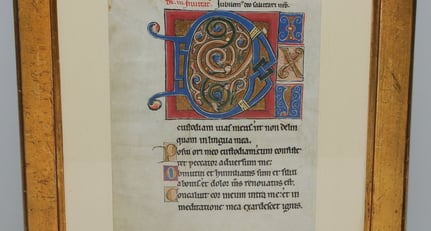 Jubilem' deo salutari
D I X I
custodiam uias meas: ut non delin
quam in lingua mea.
Posui ori meo custodiam: cum consiste
ret peccator aduersum me:
Omutui et humiliatus sum et silui
a bonis: et dolor ms renouatus est.
Concaluit cor meum intra me: et in
meditatione mea exardescet ignis.